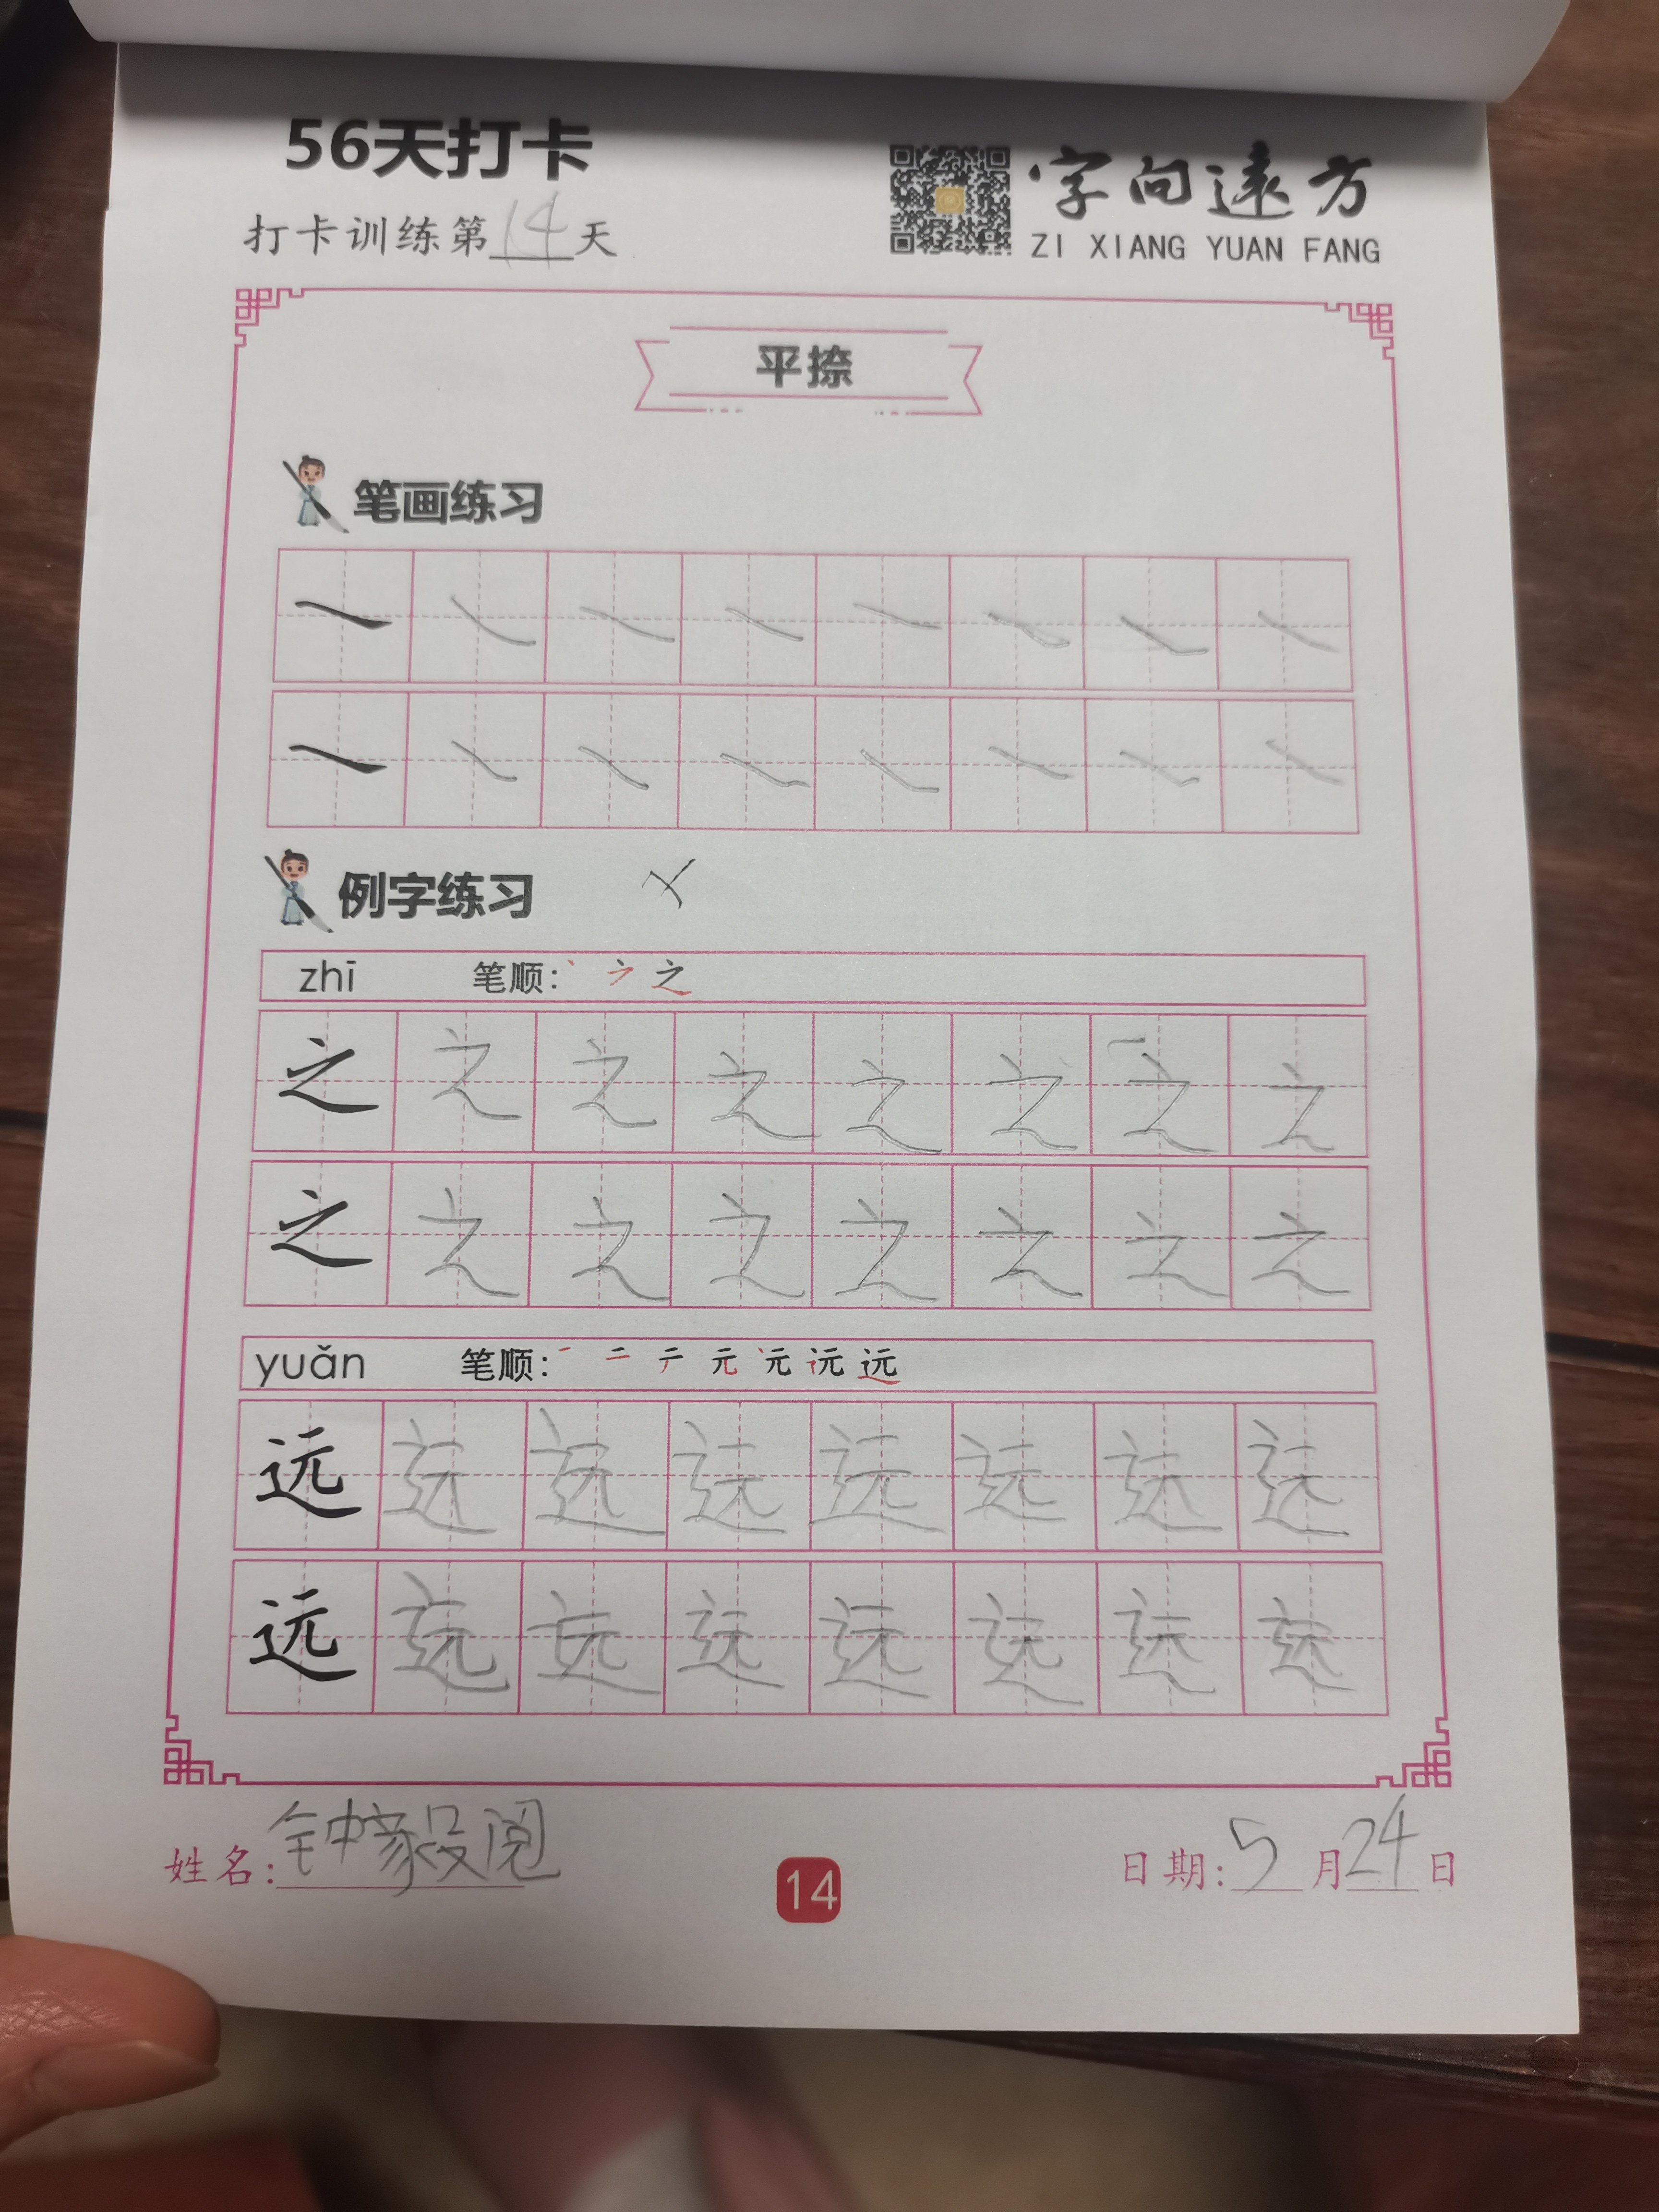 56天打卡
打卡训练第14天
字向遠方
ZI XIANG YUAN FANG
平捺
笔画练习
例字练习
zhī 笔顺: 之
之 之 之 之 之 之 之 之
之 之 之 之 之 之 之 之
yuǎn 笔顺: 一 二 テ 元 远
远 远 远 远 远 远 远 远
远 远 远 远 远 远 远 远
姓名: 钟
14
日期: 5月24日